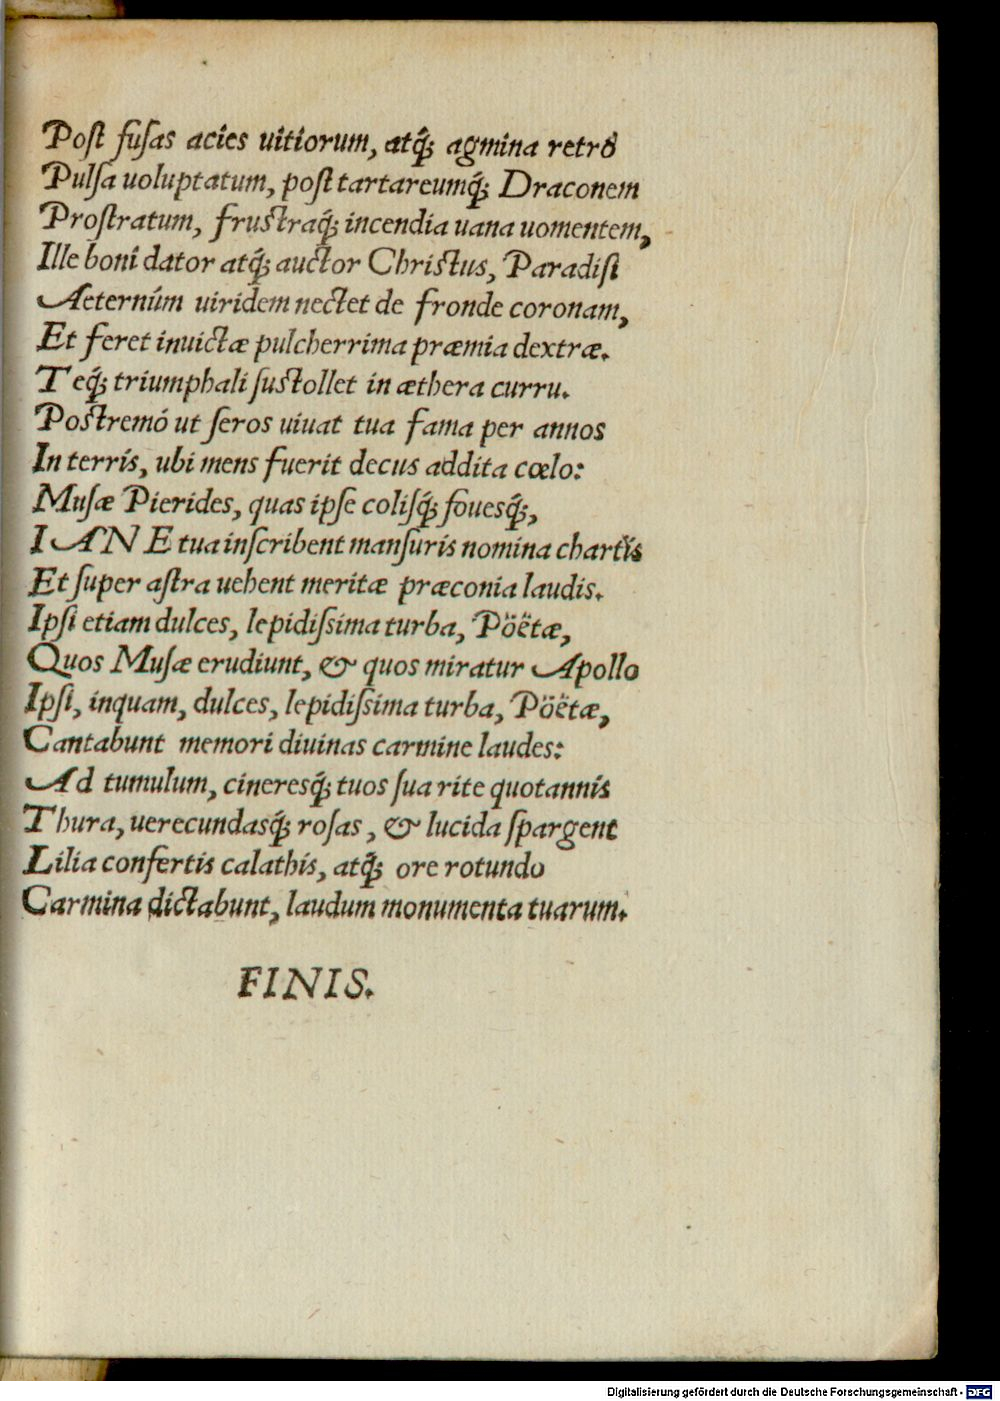 Post fuſas acies uitiorum, atq́; agmina retrò
Pulſa uoluptatum, poſt tartareumq́; Draconem
Proſtratum, fruſtraq́; incendia uana uomentem,
Ille boni dator atq́; auctor Chriſtus, Paradiſi
Aeternùm uiridem nectet de fronde coronam,
Et feret inuictæ pulcherrima præmia dextræ.
Teq́; triumphali ſuſtollet in æthera curru.
Poſtremò ut ſeros uiuat tua fama per annos
In terris, ubi mens fuerit decus addita cœlo:
Muſæ Pierides, quas ipſe coliſq́; fouesq́;,
IANE tua inſcribent manſuris nomina chartis
Et ſuper aſtra uehent meritæ præconia laudis.
Ipſi etiam dulces, lepidiſsima turba, Pöëtæ,
Quos Muſæ erudiunt, & quos miratur Apollo
Ipſi, inquam, dulces, lepidiſsima turba, Pöëtæ,
Cantabunt memori diuinas carmine laudes:
Ad tumulum, cineresq́; tuos ſua rite quotannis
Thura, uerecundasq́; roſas, & lucida ſpargent
Lilia confertis calathis, atq́; ore rotundo
Carmina dictabunt, laudum monumenta tuarum.
FINIS.
Digitalisierung gefördert durch die Deutsche Forschungsgemeinschaft - DFG